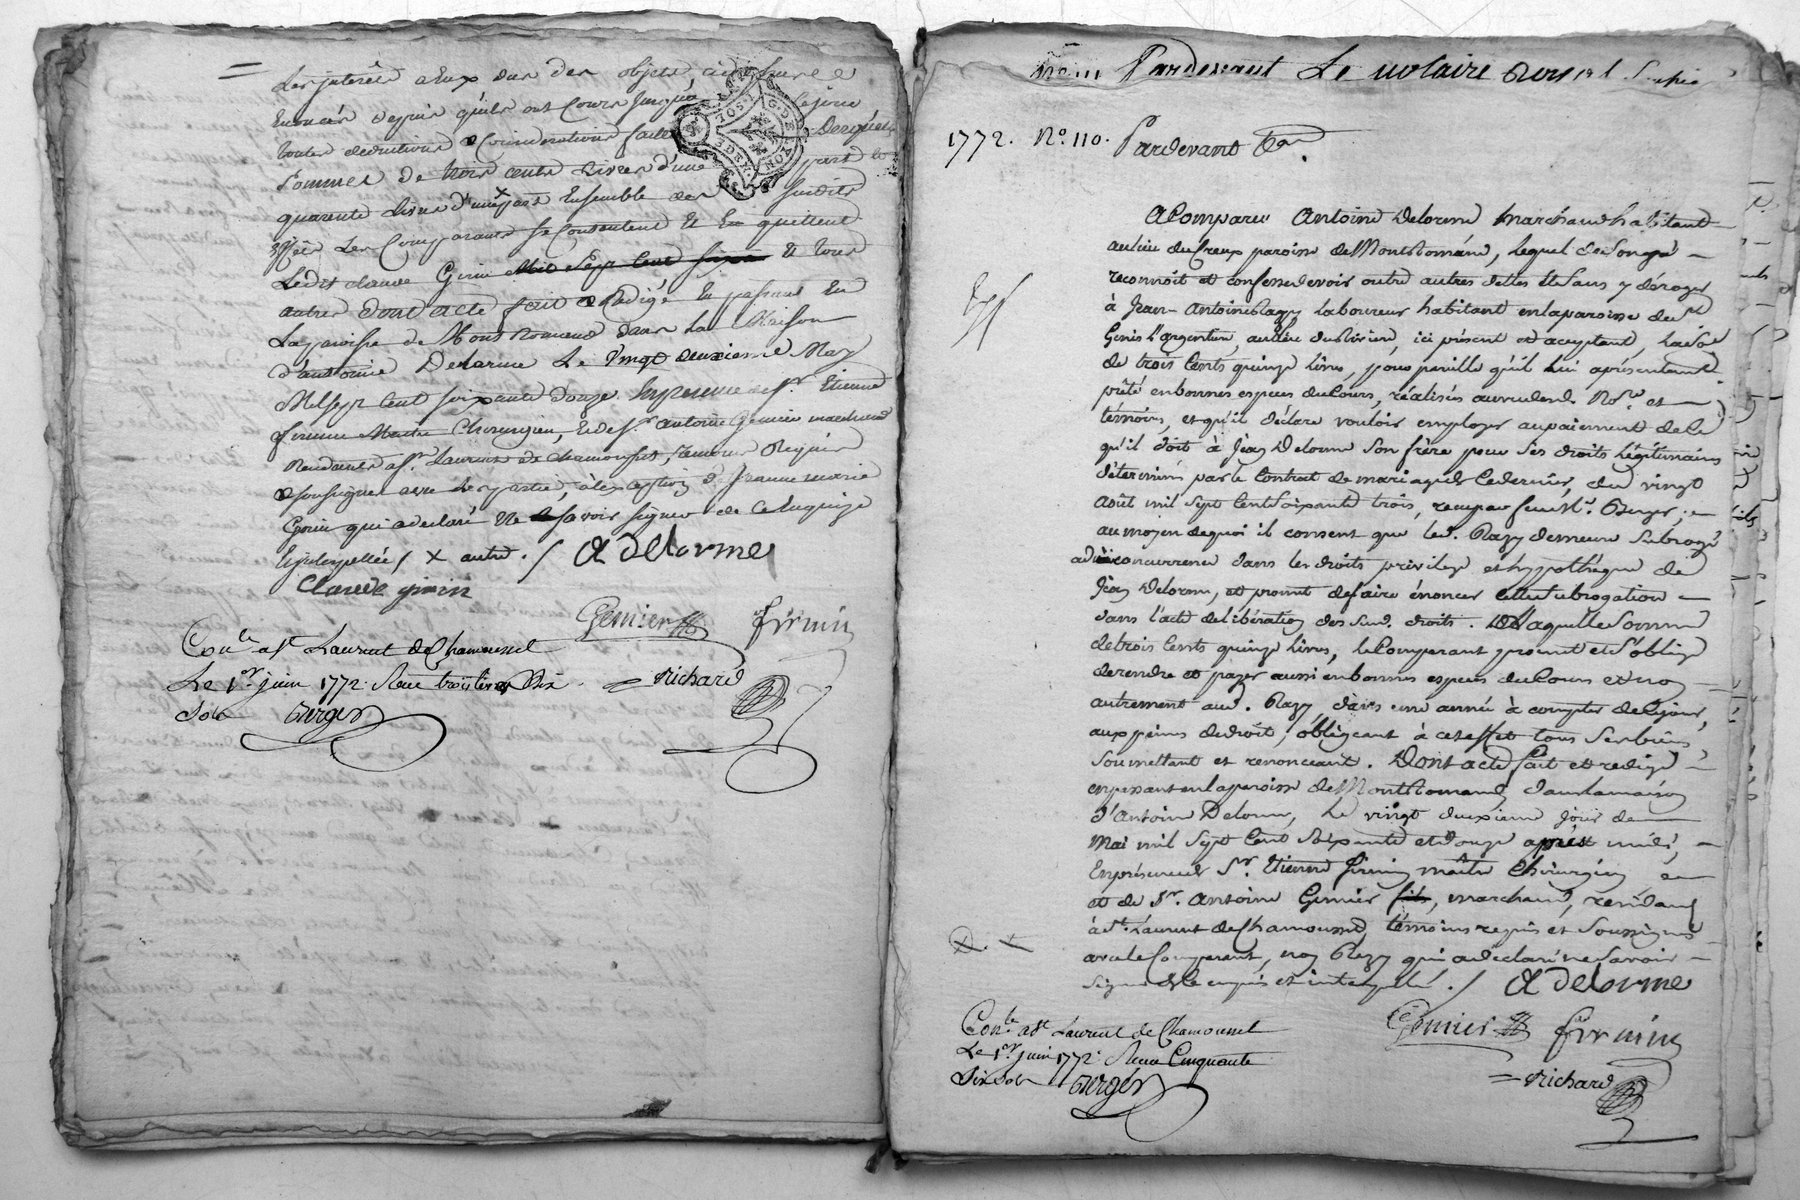 Les interêts aeux dus des objets
Enoncés depuis qu'ils ont Cours Jusqu'a cejour
toutes deductions &
Sommes de trois cents Livres d'une part &
quarente Livres d'une × part Ensemble des susdits
Les Comparants se Contentent & En quittent
Ledit claude Girin & tous
autres dont acte fait & Redigé En passant En
La paroisse de Mont Romand dans La Maison
d'antoine Delorme Le vingt deuxieme May
Mil sept Cent soixante douze En presence de sr. Etienne
firmin Maitre Chirurgien, & de sr. antoine Gemier marchand
Residants a st. Laurent de Chamousset, temoins Requis
& soussignés avec les parties, à l'exception de Jeanne marie
Girin qui a declaré Ne savoir signer de ce Enquize
& interpellée / × autre . / A delorme
Claude girin
Gemier firmin
Conle. a st Laurent de Chamousset
Le 1er. juin 1772. Reçu trois livres Dix = Richard
sols Berger
Pardevant Le notaire Royal
1772. No. 110. Pardevant &a.
A Comparu Antoine Delorme marchand habitant
au lieu du Creux paroisse de Montromand, lequel de son gré
reconnoit et confesse devoir outre autres dettes et sans y déroger
à Jean-Antoine Ragy laboureur habitant en la paroisse de st.
Genis l'argentiere, au lieu du Rivier, ici présent et aceptant, la so.e
de trois Cents quinze livres, pour pareille qu'il lui a présentement
prêté en bonnes especes du Cours, réalisés au vu du d. No.re et
témoins, et qu'il déclare vouloir employer au paiement de Ce
qu'il doit à Jean Delorme Son frère pour Ses droits légitimaires
déterminés par le Contrat de mariage de Ce dernier, du vingt
Août mil Sept Cent Soixante trois, reçu par feu Me. Berger,
au moyen de quoi il consent que led. Ragy demeure Subrogé
a due concurrence dans les droits privilege et hypothèque de
Jean Delorme, et promet de faire énoncer cette subrogation
dans l'acte de libération des sud. droits. Laquelle Somme
de trois Cents quinze livres, le Comparant promet et s'oblige
de rendre et payer aussi en bonnes especes du Cours et non
autrement aud. Ragy, dans une année à compter de Ce jour,
aux peines de droit, obligeant à cet effet tous Ses biens,
Soumettant et renonceant. Dont acte fait et redigé
en passant en la paroisse de Montromand, dans la maison
d'Antoine Delorme, le vingt deuxieme jour de
Mai mil Sept Cent Soixante et douze après midi,
En présence de Sr. Etienne firmin maître Chirurgien
et de Sr. Antoine Gemier fils, marchand, résidants
à st. Laurent de Chamousset, témoins requis et Soussignés
avec le Comparant, non Ragy qui a déclaré ne Savoir
Signer de ce enquis et interpellé ./ A delorme
Gemier firmin
Conle. a st Laurent de Chamousset
Le 1er. juin 1772. Reçu Cinquante
= Richard
Dix sols Berger